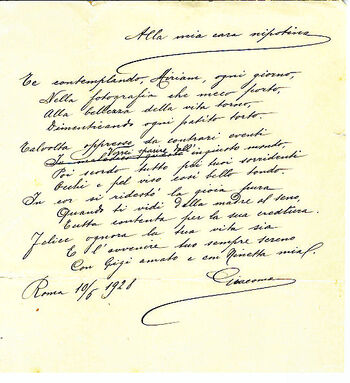 Alla mia cara nipotina
Te contemplando, Miriam, ogni giorno,
Nella fotografia che meco porto,
Alla bellezza della vita torno,
Dimenticando ogni patito torto.
Talvolta oppresso da contrari eventi
ingiusto mondo,
Poi scordo tutto pei tuoi sorridenti
Occhi e pel viso così bello tondo.
In cor si ridestò la gioia pura
Quando ti vidi della madre al seno,
Tutta contenta per la sua creatura.
Felice ognora la sua vita sia
E l'avvenire tuo sempre sereno
Con Gigi amato e con Ninetta mia!
Giacomo
Roma 10/5 1928